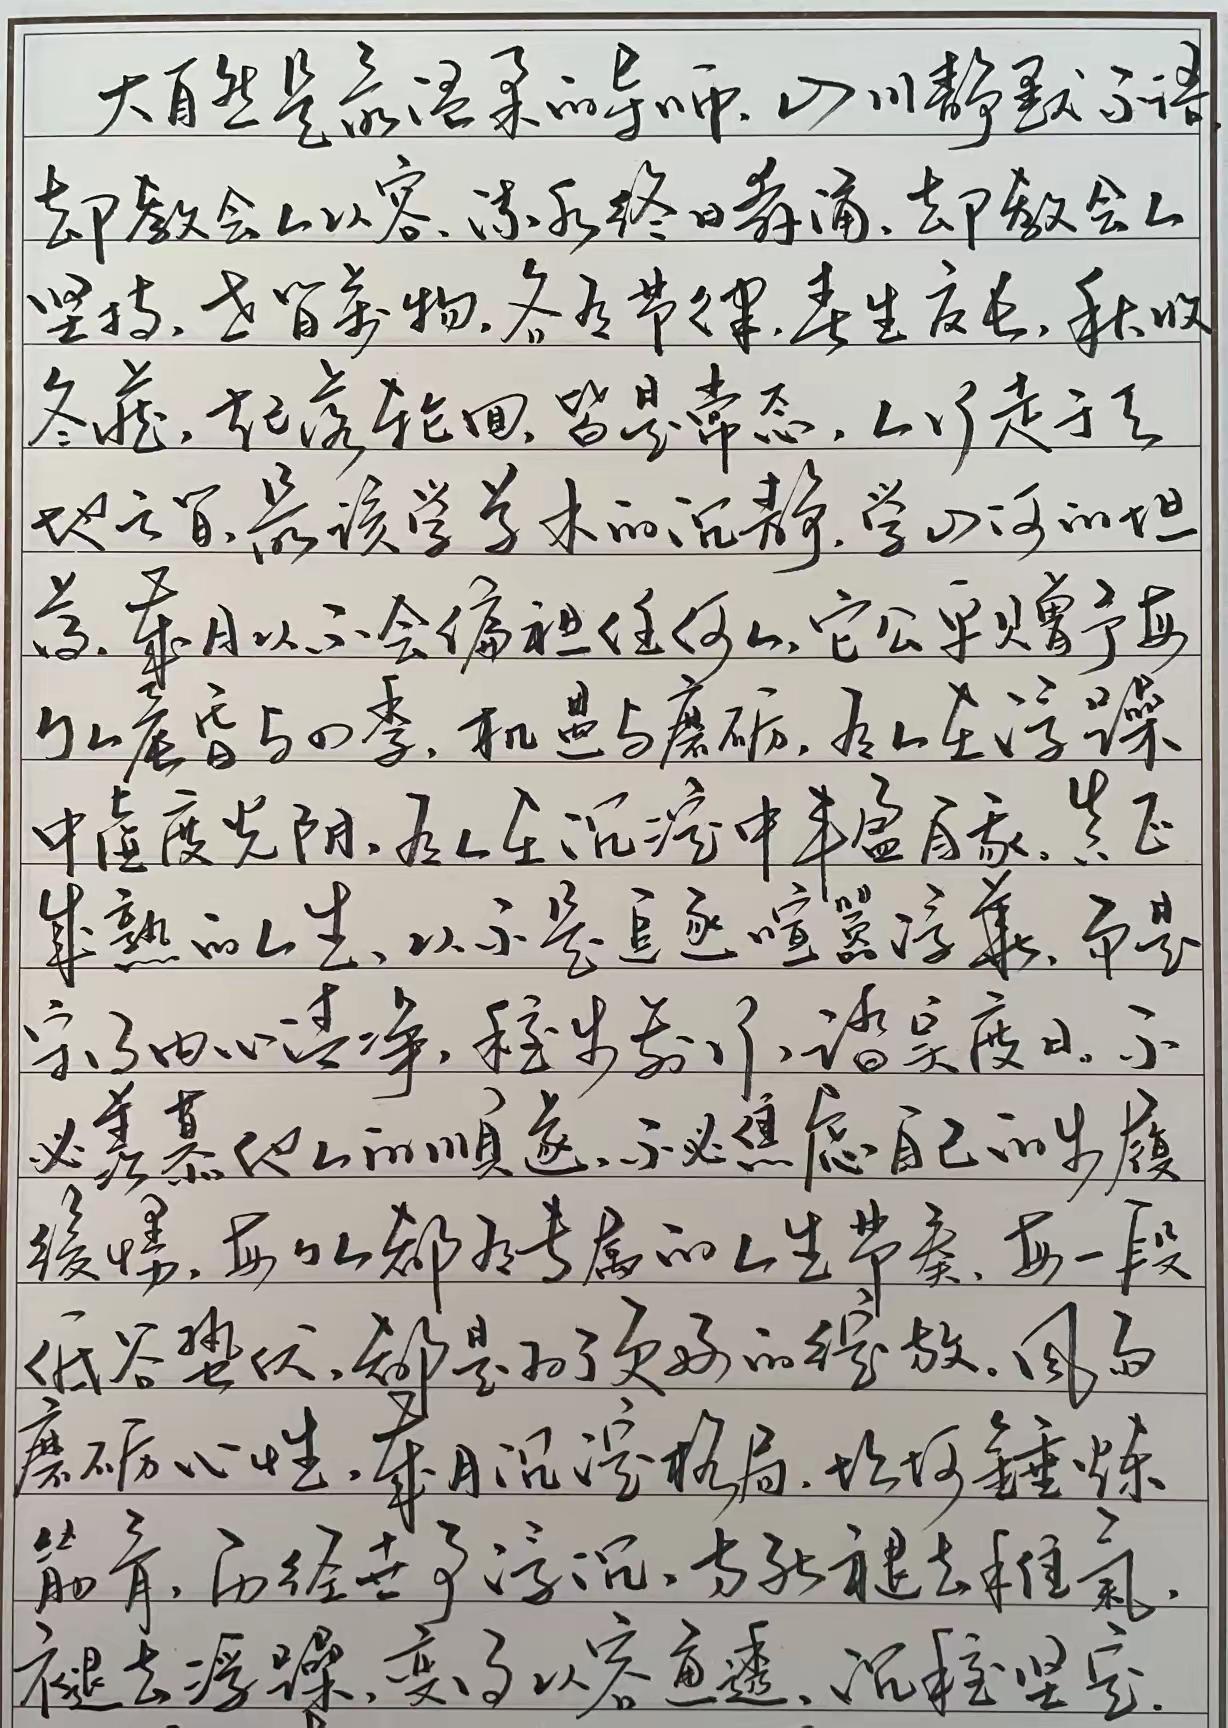 大自然是最温柔的导师，山川静默不语，
却教会人从容，流水终日奔涌，却教会人
坚持，世间万物，各有节律，春生夏长，秋收
冬藏，起落轮回，皆是常态，人行走于天
地之间，最该学草木的沉静，学山河的坦
荡，岁月从不会偏袒任何人，它公平赠予每
个人晨昏与四季，机遇与磨砺，有人在浮躁
中虚度光阴，有人在沉淀中丰盈自我，真正
成熟的人生，从不是追逐喧嚣浮华，而是
守得内心清净，稳步前行，踏实度日。不
必羡慕他人的顺遂，不必焦虑自己的步履
缓慢，每个人都有专属的人生节奏，每一段
低谷蛰伏，都是为了更好的绽放。风雨
磨砺心性，岁月沉淀格局，坎坷锤炼
筋骨，历经世事浮沉，方能褪去稚气，
褪去浮躁，变得从容通透，沉稳坚定。